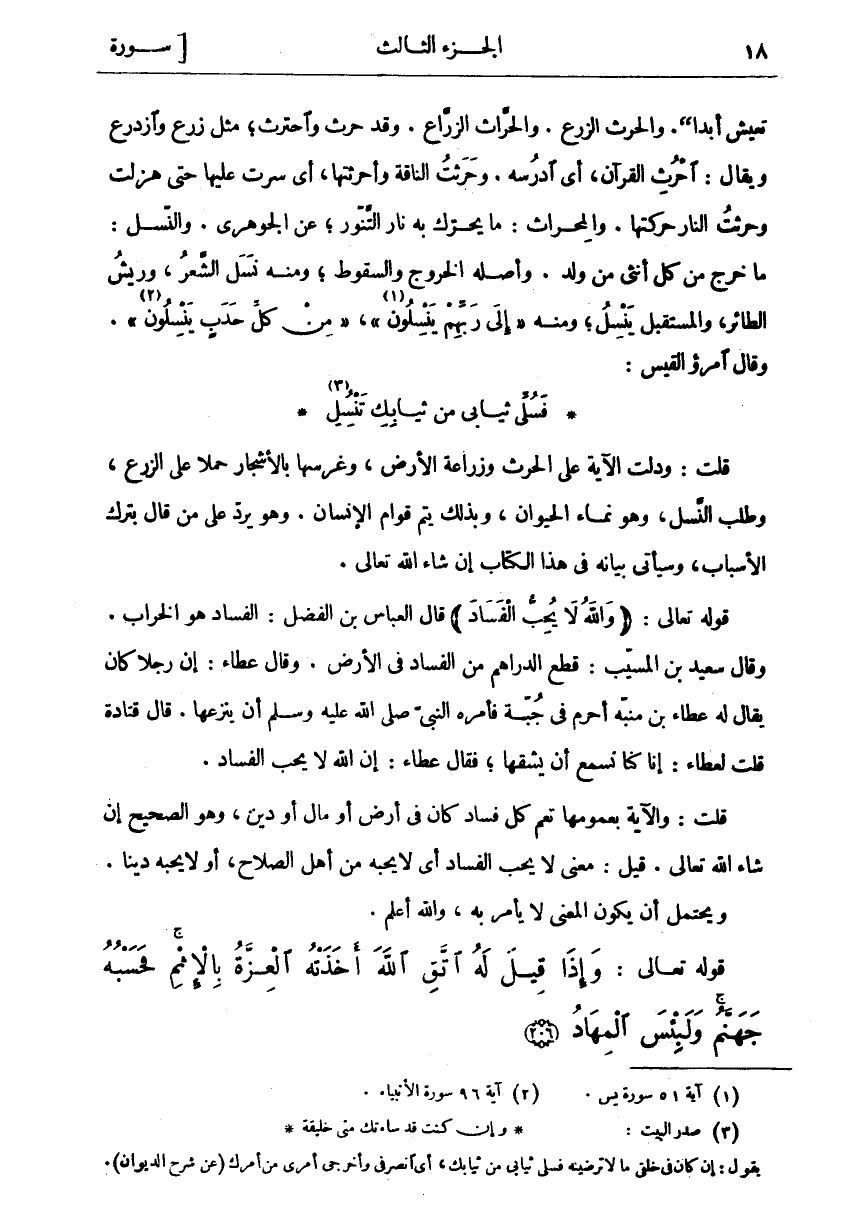 ١٨ الجـزء الثـالث [ ســـورة
تعيش أبدا". والحرث الزرع . والحرّاث الزرّاع . وقد حرث وٱحترث؛ مثل زرع وٱزدرع
ويقال : ٱحْرُثِ القرآن، أى ٱدرُسه . وحَرَثتُ الناقة وأحرثتها، أى سرت عليها حتى هزلت
وحرثتُ النار حركتها . والمحـراث : ما يحـرّك به نار التَّنّور ؛ عن الجوهرى . والنّسـل :
ما خرج من كل أنثى من ولد . وأصـله الخروج والسقوط ؛ ومنـه نَسَل الشَّعرُ ، وريشُ
الطائر، والمستقبل يَنْسِلُ ؛ ومنـه « إِلَى رَبِّهِمْ يَنْسِلُونَ (١) »، « مِنْ كُلِّ حَدَبٍ يَنْسِلُونَ (٢) » .
وقال ٱمرؤ القيس :
* فَسُلِّى ثيـابى من ثيـابِكِ تَنْسُلِ (٣) *
قلت : ودلت الآية على الحرث وزراعة الأرض ، وغرسها بالأشجار حملا على الزرع ،
وطلب النَّسل ، وهو نمـاء الحيوان ، وبذلك يتم قوام الإنسان . وهو يردّ على من قال بترك
الأسباب، وسيأتى بيانه فى هذا الكتاب إن شاء الله تعالى .
قوله تعالى : ﴿ وَاللَّهُ لَا يُحِبُّ الْفَسَادَ ﴾ قال العباس بن الفضل : الفساد هو الخراب .
وقال سعيد بن المسيّب : قطع الدراهم من الفساد فى الأرض . وقال عطاء : إن رجلا كان
يقال له عطاء بن منبّه أحرم فى جُبّـة فأمره النبىّ صلى الله عليه وسـلم أن ينزعها . قال قتادة
قلت لعطاء : إنا كنا نسمع أن يشقها ؛ فقال عطاء : إن الله لا يحب الفساد .
قلت : والآية بعمومها تعم كل فساد كان فى أرض أو مال أو دين ، وهو الصحيح إن
شاء الله تعالى . قيل : معنى لا يحب الفساد أى لايحبه من أهل الصلاح، أو لايحبه دينا .
ويحتمل أن يكون المعنى لا يأمر به ، والله أعلم .
قوله تعـالى : وَإِذَا قِيـلَ لَهُ ٱتَّقِ ٱللَّهَ أَخَذَتْهُ ٱلْعِـزَّةُ بِالْإِثْمِۚ فَحَسْبُهُۥ
جَهَنَّمُۚ وَلَبِئْسَ ٱلْمِهَادُ ﴿٢٠٦﴾
(١) آية ٥١ سورة يس . (٢) آية ٩٦ سورة الأنبياء .
(٣) صدر البيت : * وإن كنت قد ساءتك منى خليقة *
يقول : إن كان فى خلقى ما لا ترضينه فسلى ثيابى من ثيابك ، أى ٱنصرفى وأخرجى أمرى من أمرك (عن شرح الديوان).